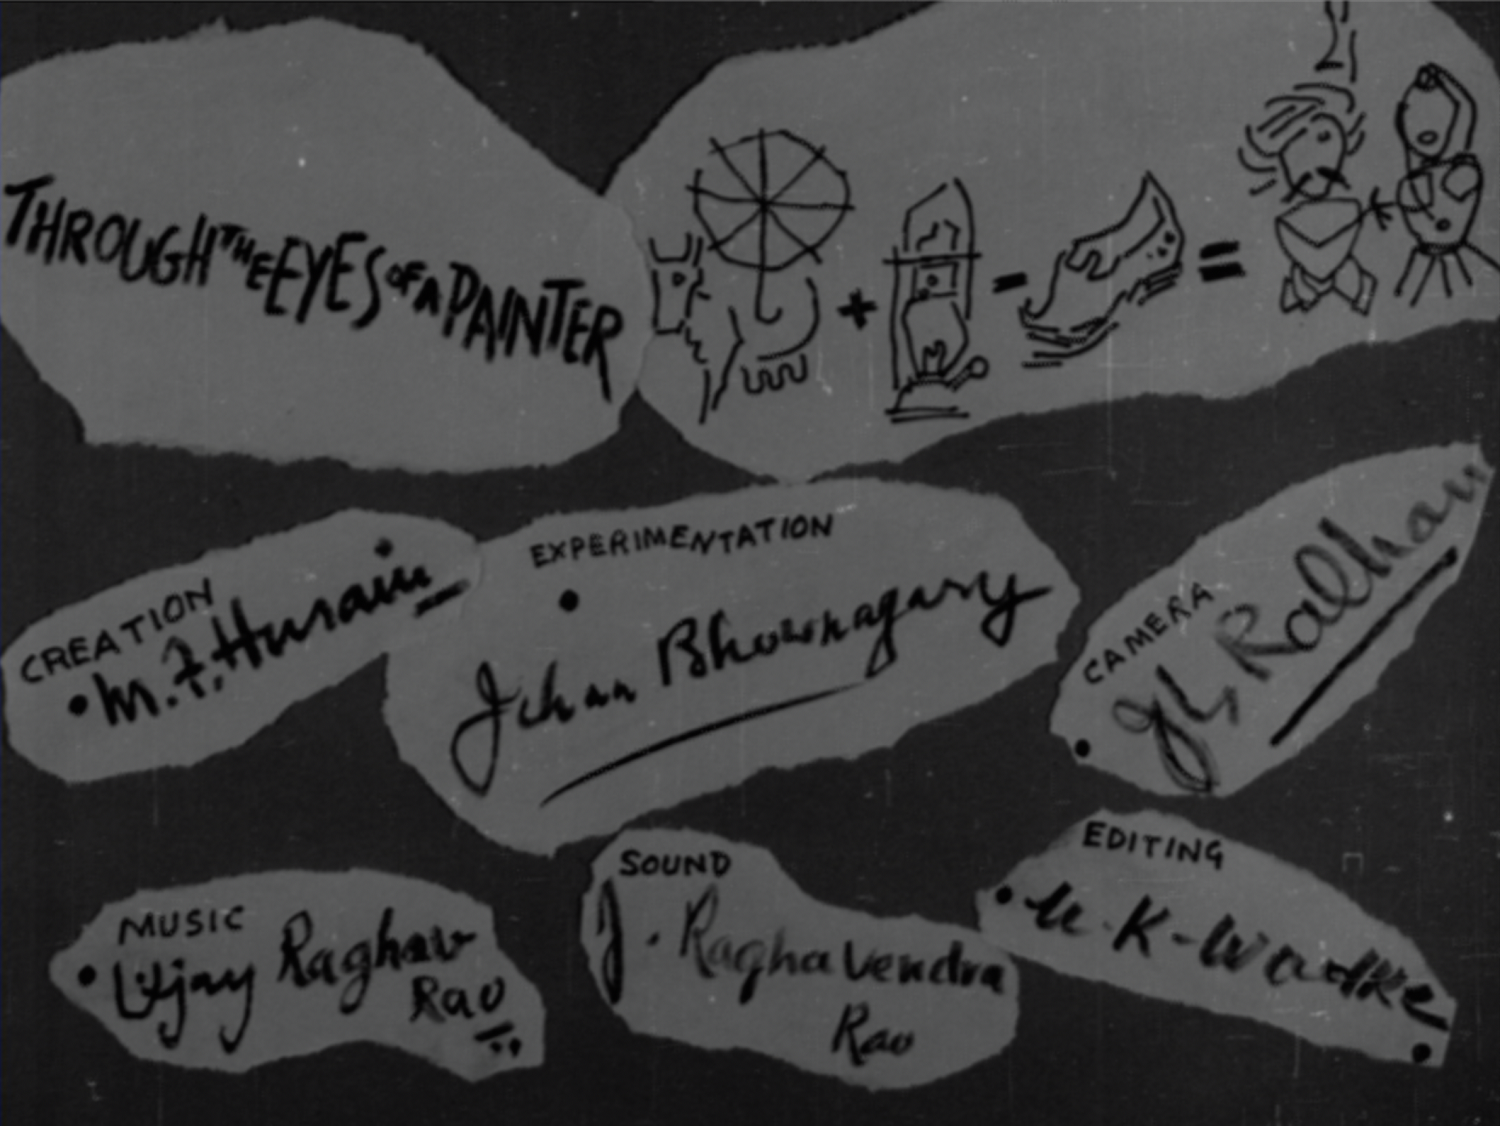 THROUGH THE EYES OF A PAINTER
+ - =
CREATION
M. F. Husain
EXPERIMENTATION
Jehan Bhownagary
CAMERA
Ralhan
MUSIC
Vijay Raghav
Rao
SOUND
J. Raghavendra
Rao
EDITING
K-Wadke